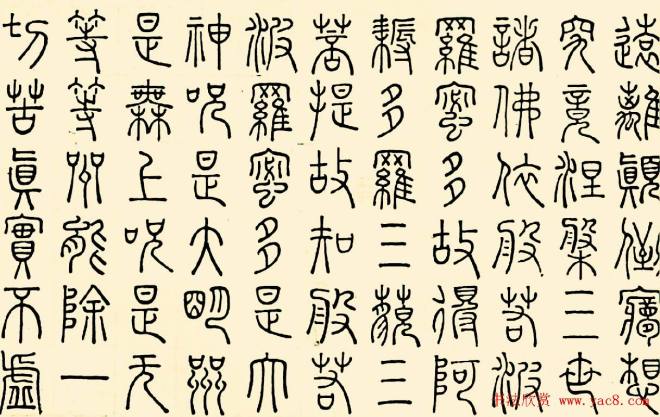 遠離顛倒寢想
究竟涅槃三世
諸佛依般若波
羅蜜多故得阿
耨多羅三藐三
菩提故知般若
波羅蜜多是大
神咒是大明咒
是無上咒是无
等等咒能除一
切苦眞實不虛
书法欣赏 www.yac8.com